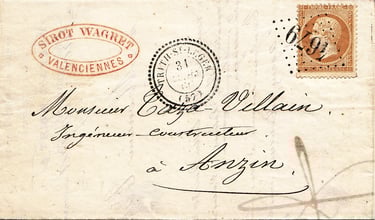 SIROT WAGRET
VALENCIENNES
TRITH-ST-LEGER
31
(57)
Monsieur Caza-Villain
Ingénieur-constructeur
à Anzin